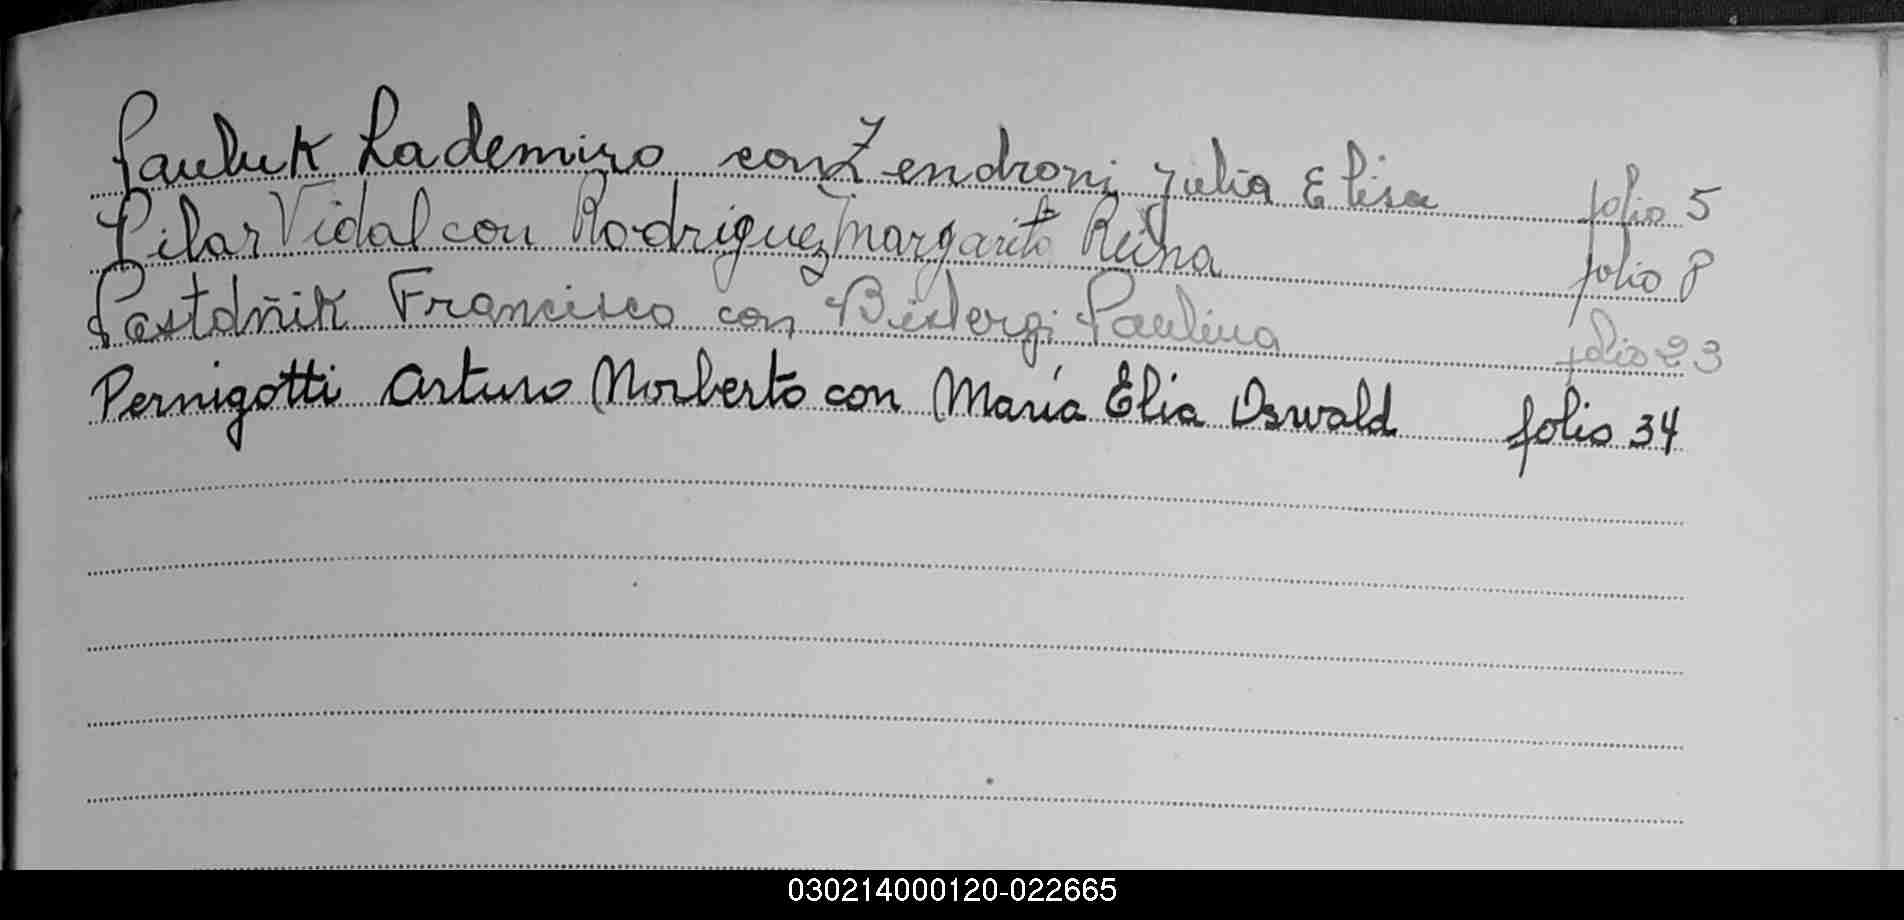 Pauluk Lademiro con Zendroni Julia Elisa folio 5
Pilar Vidal con Rodriguez Margarita Reina folio 8
Postdñik Francisco con Paulina folio 23
Pernigotti Arturo Norberto con María Elia Oswald folio 34
030214000120-022665